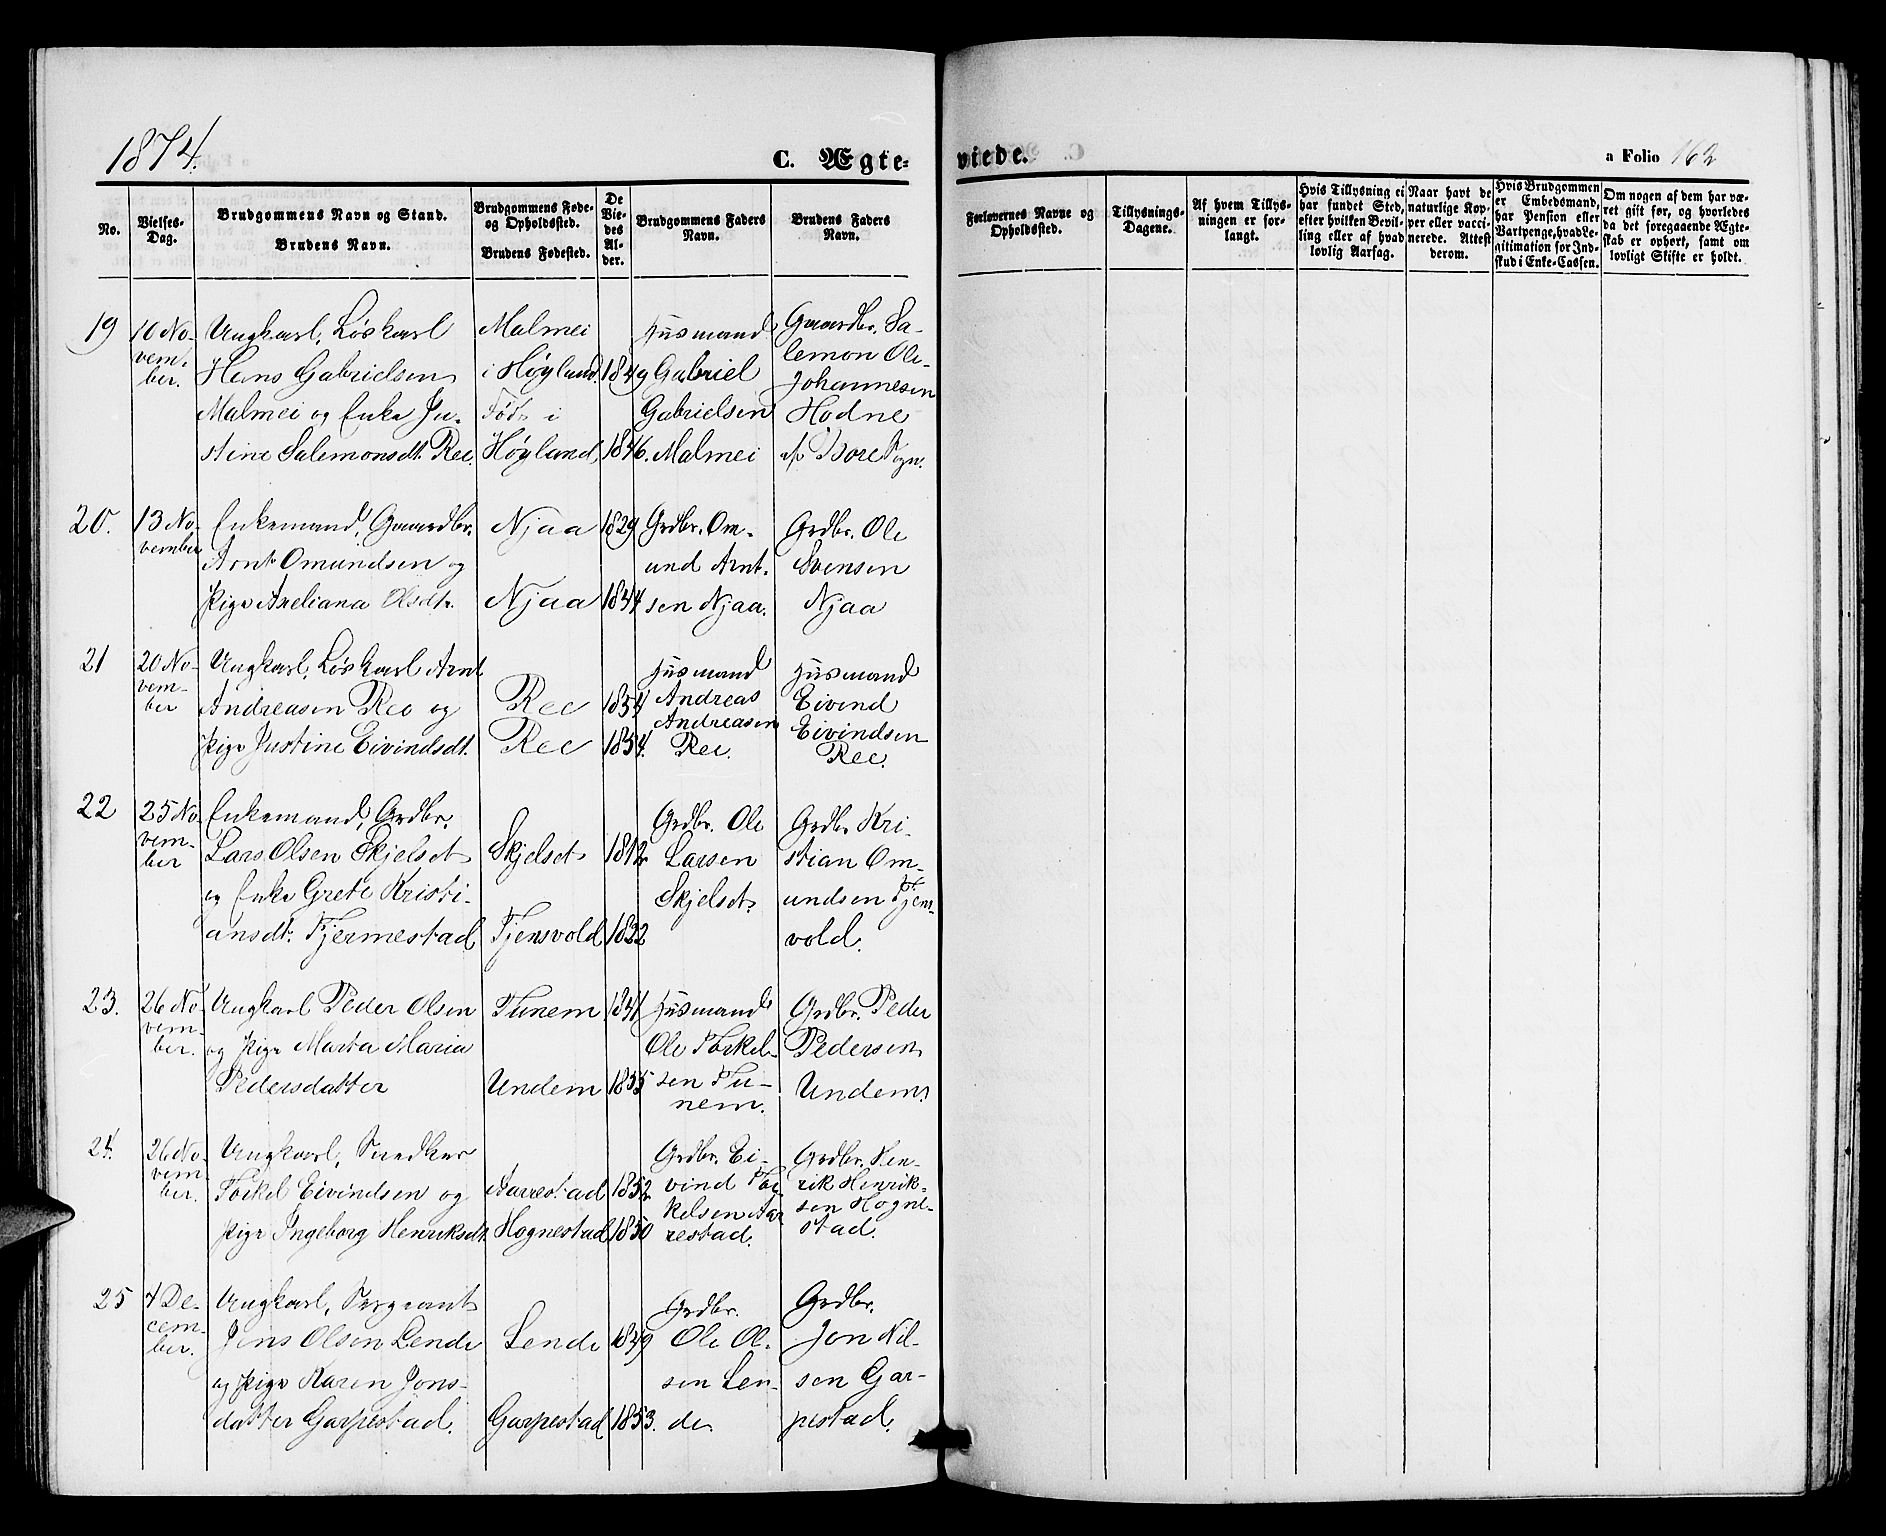 1874.
C. Ægte-
viede.
a Folio 162
No.
Vielses-
Dag.
Brudgommens Navn og Stand.
Brudens Navn.
Brudgommens Føde-
og Opholdssted.
Brudens Fødested.
De
Vie-
des
Al-
der.
Brudgommens Faders
Navn.
Brudens Faders
Navn.
Forlovernes Navne og
Opholdssted.
Tillysnings-
Dagene.
Af hvem Tillys-
ningen er for-
langt.
Hvis Tillysning ei
har fundet Sted,
efter hvilken Bevil-
ling eller af hvad
lovlig Aarsag.
Naar havt de
naturlige Kop-
per eller vacci-
nerede. Attest
derom.
Hvis Brudgommen
er Embedsmand,
har Pension eller
Vartpenge, hvad Le-
gitimation for Ind-
skud i Enke-Cassen.
Om nogen af dem har væ-
ret gift før, og hvorledes
da det foregaaende Ægte-
skab er ophørt, samt om
lovligt Skifte er holdt.
19
10 No-
vem-
ber.
Ungkarl, Løskarl
Hans Gabrielsen
Malmei og Enke Ju-
stine Salemonsdt. Ree.
Malmei
i Høyland.
Født i
Høyland
1849
1846.
Husmand
Gabriel
Gabrielsen
Malmei
Gaardbr. Sa-
lemon Ole
Johannesen
Hodne
af Bore Sogn.
20.
13 No-
vember
Enkemand, Gaardbr.
Arnt Omundsen og
Pige Axeliana Olsdt.
Njaa
Njaa
1829
1844
Grdbr. Om-
und Arnt-
sen Njaa.
Grdbr. Ole
Svensen
Njaa
21
20 No-
vem-
ber
Ungkarl, Løskarl Arnt
Andreasen Ree og
Pige Justine Eivindsdt.
Ree
Ree
1854
1854.
Husmand
Andreas
Andreasen
Ree.
Husmand
Eivind
Eivindsen
Ree.
22
25 No-
vem-
ber
Enkemand, Grdbr.
Lars Olsen Skjelset
og Enke Grete Kristi-
ansdt. Tjermestad
Skjelset
Tjensvold
1812
1822
Grdbr. Ole
Larsen
Skjelset.
Grdbr. Kri-
stian Om-
undsen Tjens-
vold.
23.
26 No-
vem-
ber.
Ungkarl Peder Olsen
og Pige Marta Maria
Pedersdatter
Tunem
Undem
1841
1855
Husmand
Ole Torkel-
sen Tu-
nem.
Grdbr. Peder
Pedersen
Undem.
24.
26 No-
vem-
ber.
Ungkarl, Snedker
Torkel Eivindsen og
Pige Ingeborg Henriksdt.
Aarrestad
Hognestad
1852
1850
Grdbr. Ei-
vind Tor-
kelsen Aar-
restad.
Grdbr. Hen-
rik Henrik-
sen Hogne-
stad.
25
4 De-
cem-
ber.
Ungkarl, Sergeant
Jens Olsen Lende
og Pige Karen Jons-
datter Garpestad.
Lende
Garpestad
1849
1853.
Grdbr.
Ole Ol-
sen Len-
de.
Grdbr.
Jon Nil-
sen Gar-
pestad.